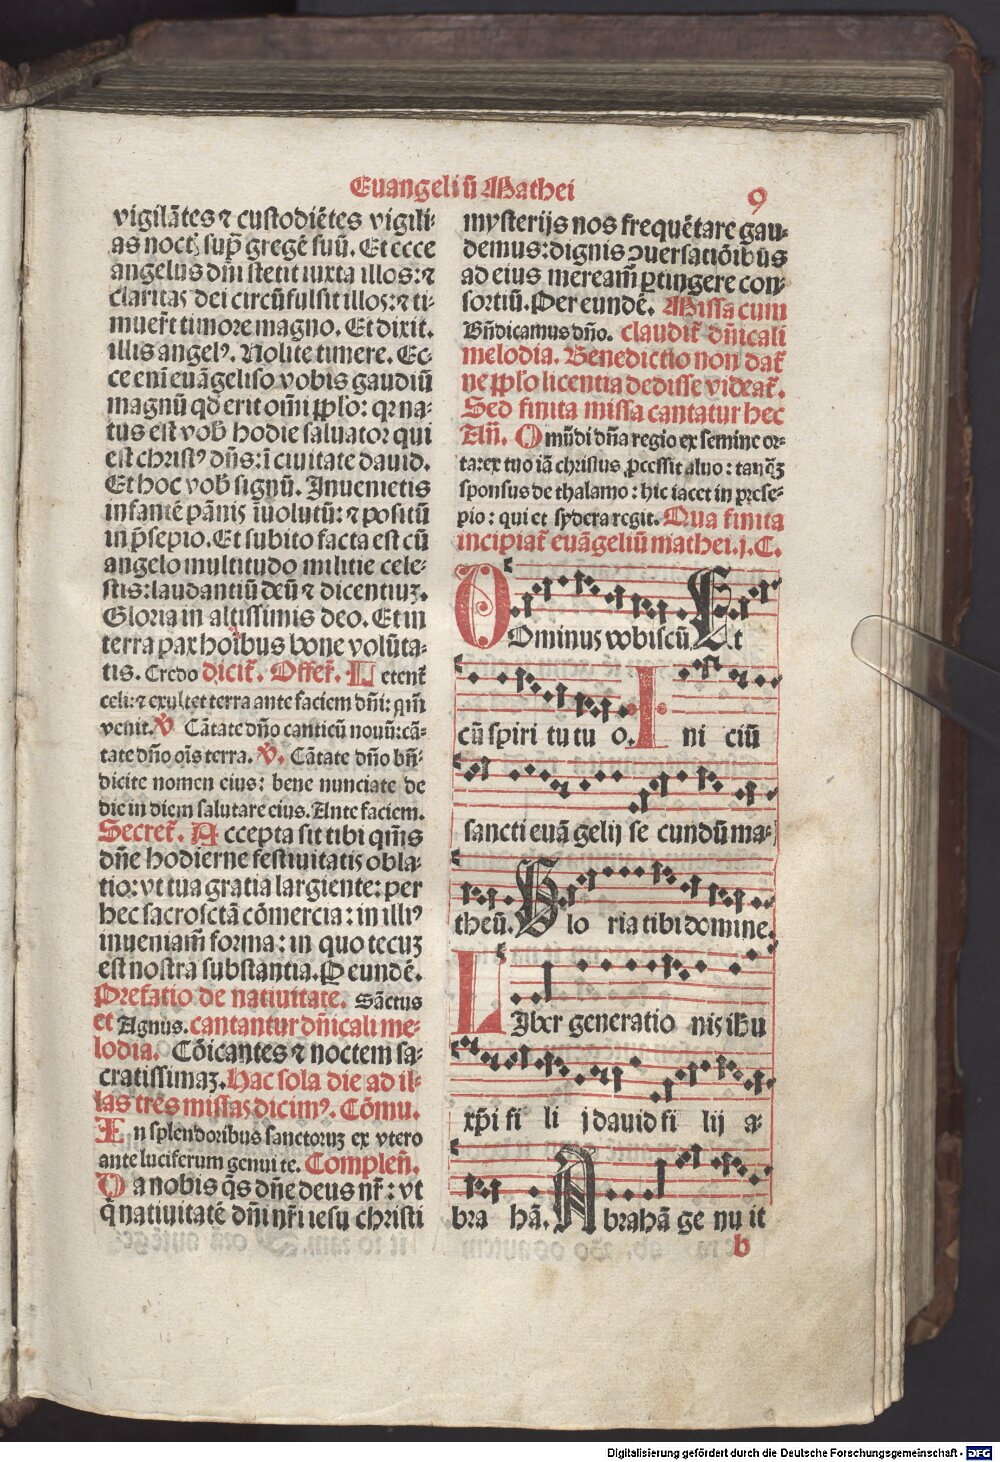 Euangeliū Mathei
9
vigilātes ⁊ custodiētes vigili-
as noctꝭ sup̄ gregē suū. Et ecce
angelus dn̄i stetit iuxta illos: ⁊
claritas dei circūfulsit illos: ⁊ ti-
muer̄t timore magno. Et dixit.
illis angelꝰ. Nolite timere. Ec-
ce eni euāgeliso vobis gaudiū
magnū qd̄ erit oīni pplo: qꝛ na-
tus est vob̄ hodie saluator qui
est christꝰ dn̄s: ī ciuitate dauid.
Et hoc vob̄ signū. Inuenietis
infantē pānis īuolutū: ⁊ positū
in p̄sepio. Et subito facta est cū
angelo multitudo militie cele-
stis: laudantiū deū ⁊ dicentiuꝫ.
Gloria in altissimis deo. Et in
terra pax hoībus bone volūta-
tis. Credo dicit̄. Offer̄. Letent̄
celi: ⁊ exultet terra ante faciem dn̄i: qm̄
venit. ℣ Cātate dn̄o canticū nouū: cā-
tate dn̄o oīs terra. ℣. Cātate dn̄o bn̄-
dicite nomen eius: bene nunciate de
die in diem salutare eius. Ante faciem.
Secret̄. Accepta sit tibi qm̄s
dn̄e hodierne festiuitatis obla-
tio: vt tua gratia largiente: per
hec sacroſctā cōmercia: in illiꝰ
inueniam̄ forma: in quo tecuꝫ
est nostra substantia. P eundē.
Prefatio de natiuitate. Sāctus
et Agnus. cantantur dn̄icali me-
lodia. Cōicantes ⁊ noctem sa-
cratissimaꝫ. Hac sola die ad il-
las tres missas dicimꝰ. Cōmu.
In splendoribus sanctoruꝫ ex vtero
ante luciferum genui te. Complen̄.
Da nobis q̄s dn̄e deus nr̄: vt
q̄ natiuitatē dn̄i nr̄i iesu christi
mysterijs nos frequētare gau-
demus: dignis ꝯuersatiōibus
ad eius meream̄ ꝑtingere con-
sortiū. Per eundē. Missa cum
Bn̄dicamus dn̄o. claudit̄ dn̄icali
melodia. Benedictio non dat̄
ne pplo licentia dedisse videat̄.
Sed finita missa cantatur hec
Añ. O mūdi dn̄a regio ex semine or-
ta: ex tuo iā christus ꝓcessit aluo: tanq̄ꝫ
sponsus de thalamo: hic iacet in prese-
pio: qui et sydera regit. Qua finita
incipiat̄ euāgeliū mathei. j. C.
DOminus vobiscū. Et
cū spiri tu tu o. I ni ciū
sancti euā gelij se cundū ma-
theū. Glo ria tibi domine.
LIber generatio nis ihu
xp̄i fi li j dauid fi lij a-
bra hā. Abrahā ge nu it
b
Digitalisierung gefördert durch die Deutsche Forschungsgemeinschaft - DFG